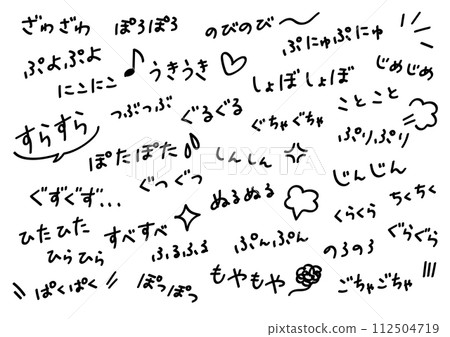 ざわざわ ぽろぽろ のびのび
ぷよぷよ ぷにゅぷにゅ
にこにこ うきうき じめじめ
しょぼしょぼ
つぶつぶ ことこと
すらすら ぐるぐる ぐちゃぐちゃ
ぷりぷり
ぽたぽた しんしん
ぐつぐつ じんじん
ぐずぐず... ぬるぬる ちくちく
くらくら
ひたひた すべすべ ぐらぐら
ふるふる ぷんぷん のろのろ
ひらひら
ぱくぱく ぽつぽつ もやもや ごちゃごちゃ
PIXTA
112504719